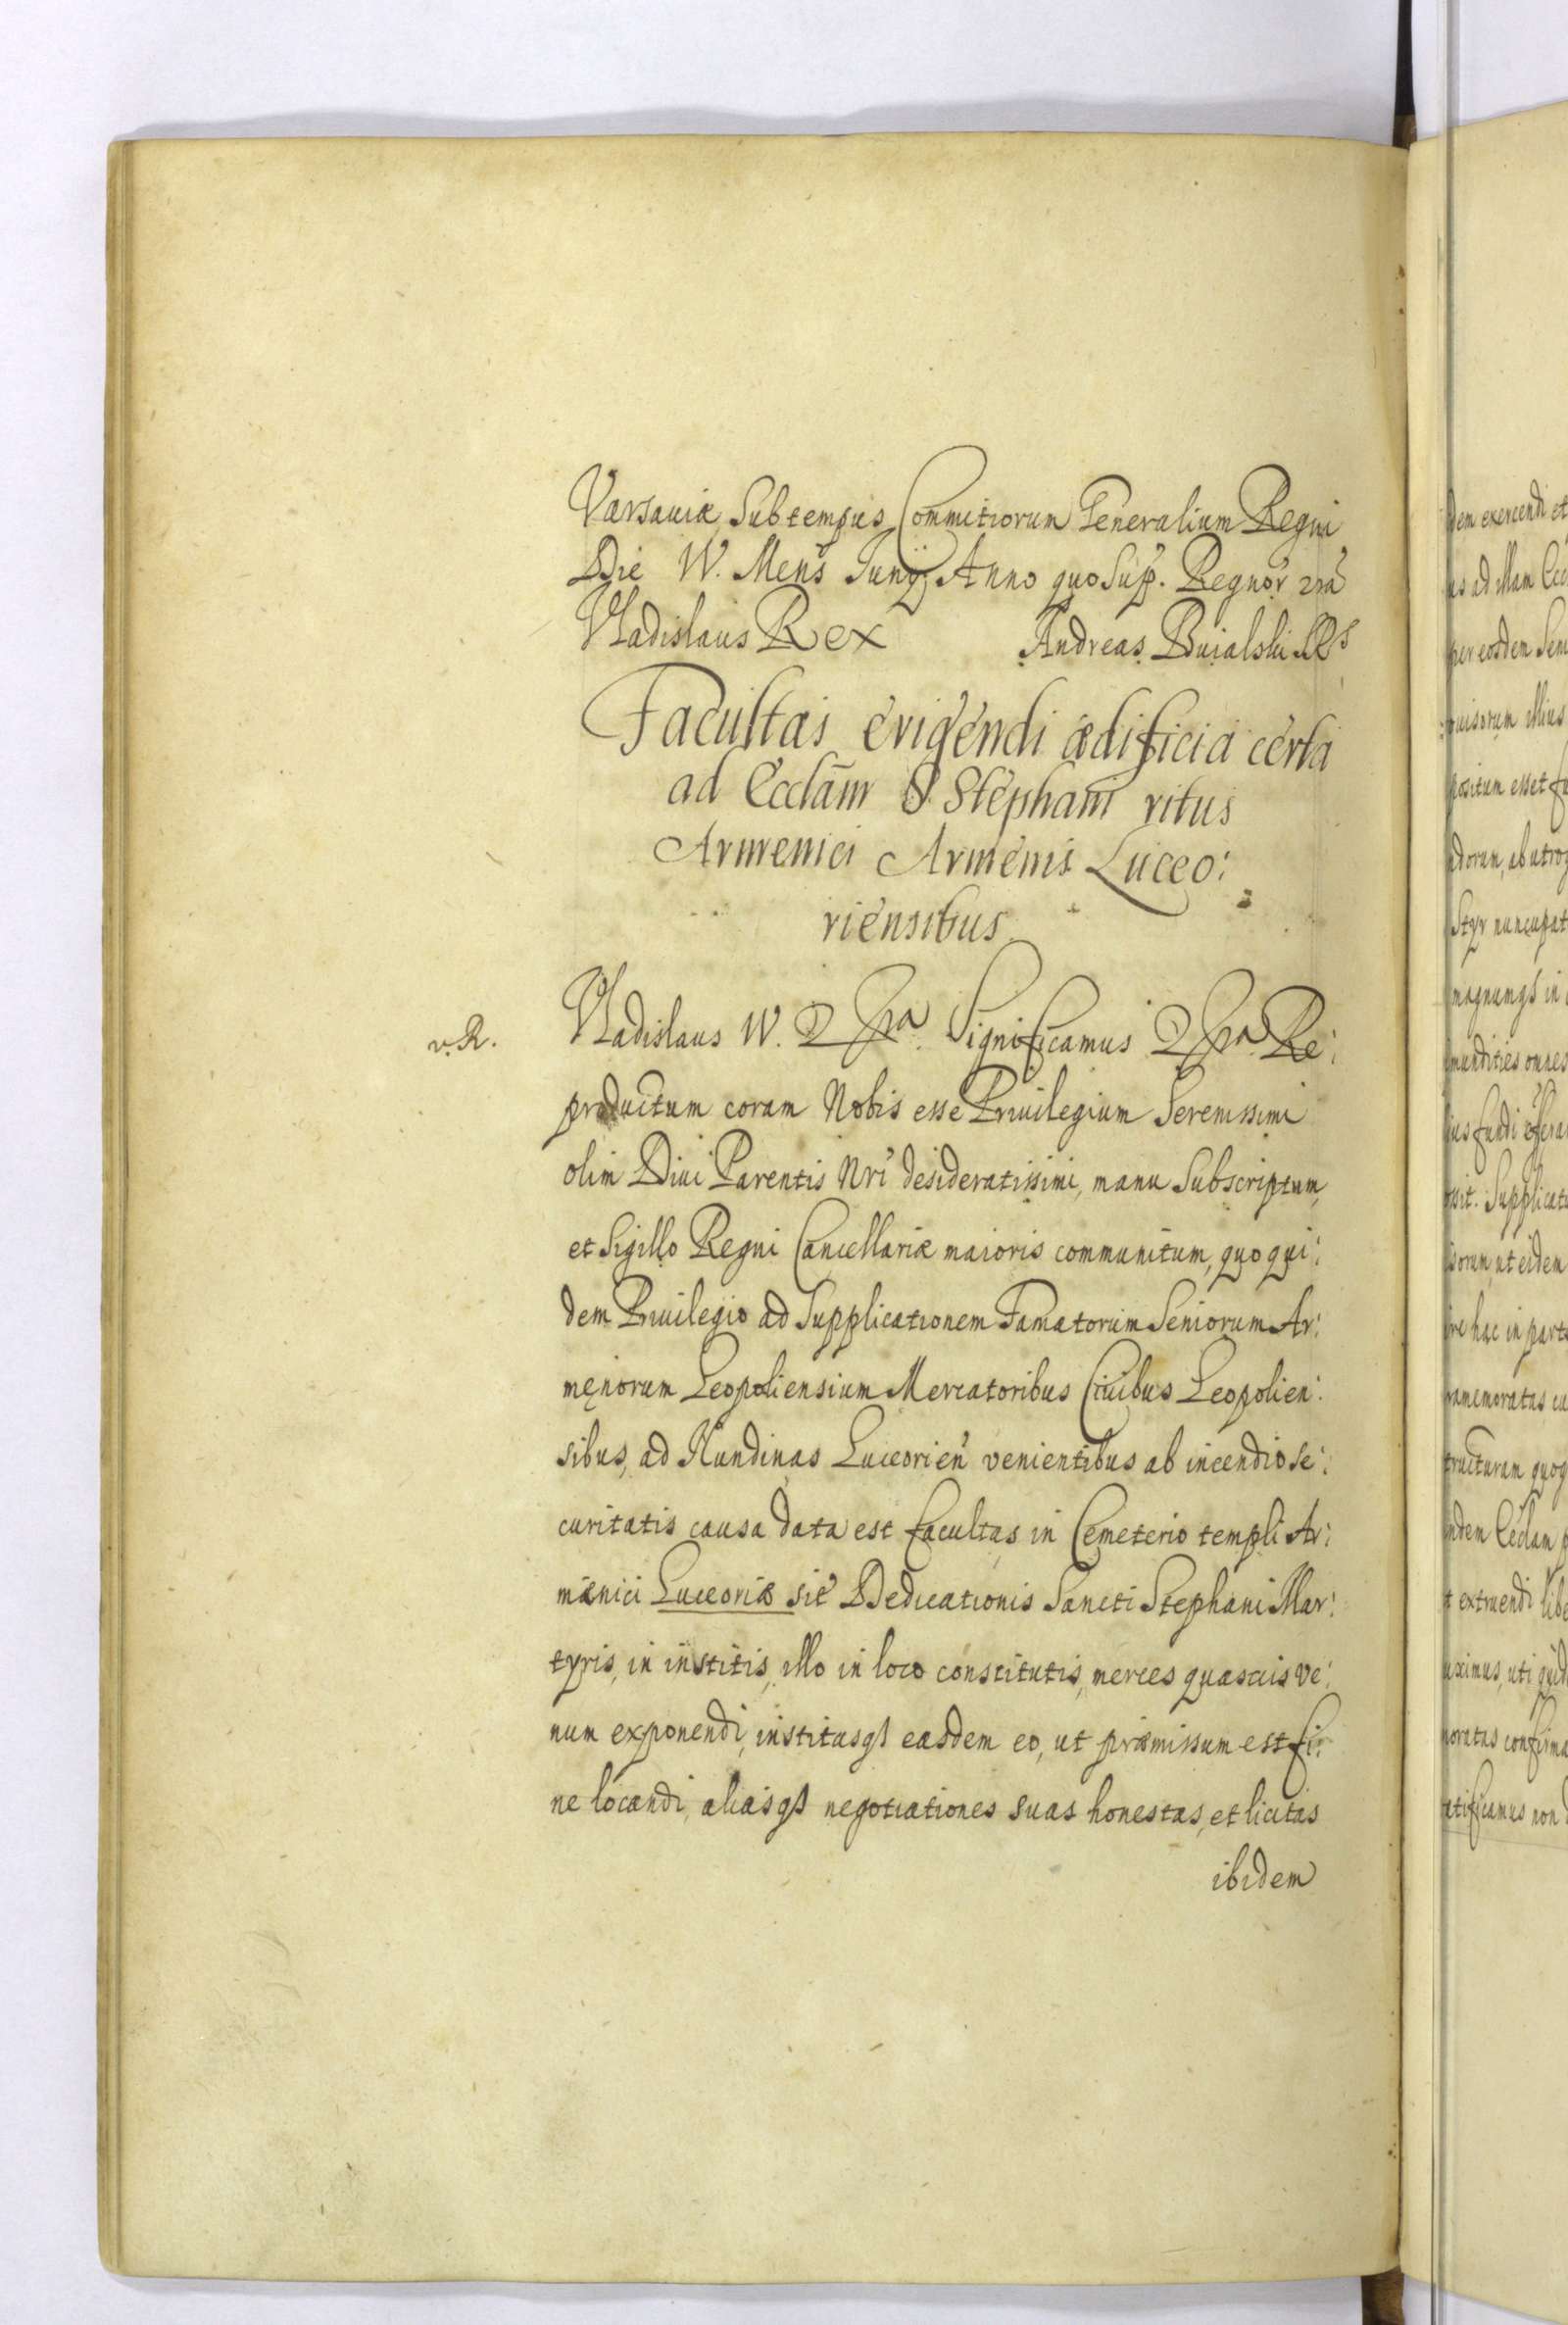 Varsauiæ Sub tempus Commitiorum Generalium Regni
Die IV. Mens Junÿ Anno quo Sup. Regnor nrã
Vladislaus Rex Andreas Buialski SRS
Facultas erigendi ædificia certa
ad Ecclãm S. Stephani ritus
Armenici Armenis Luceo:
riensibus
v. R.
Vladislaus IV. Significamus Re:
productum coram Nobis esse Priuilegium Serenissimi
olim Diui Parentis Nri desideratissimi, manu Subscriptum,
et Sigillo Regni Cancellariæ maioris communitum, quo qui:
dem Priuilegio ad Supplicationem Famatorum Seniorum Ar:
męnorum Leopoliensium Mercatoribus Ciuibus Leopolien:
sibus, ad Nundinas Luceorien venientibus ab incendio se:
curitatis causa data est facultas in Cemeterio templi Ar:
mænici Luceoriæ sit Dedicationis Sancti Stephani Mar:
tyris, in institis, illo in loco constitutis, merces quasuis ve:
num exponendi, institasqs easdem eo, ut præmissum est fi:
ne locandi, aliasqs negotiationes suas honestas, et licitas
ibidem
dem exercendi et
us ad illam
per eosdem Sen
uisorum illius
positum esset fu
dorum, ab utroq
Styr nuncupat
magnumqs in
mundities omnes
ius fundi
ssit. Supplicatu
isorum, ut eidem
re hac in parte
ramemoratas
tructuram quoq
ndem Ecclam p
t extruendi libe
uximus, uti quid
noratas confirma
atificamus non d